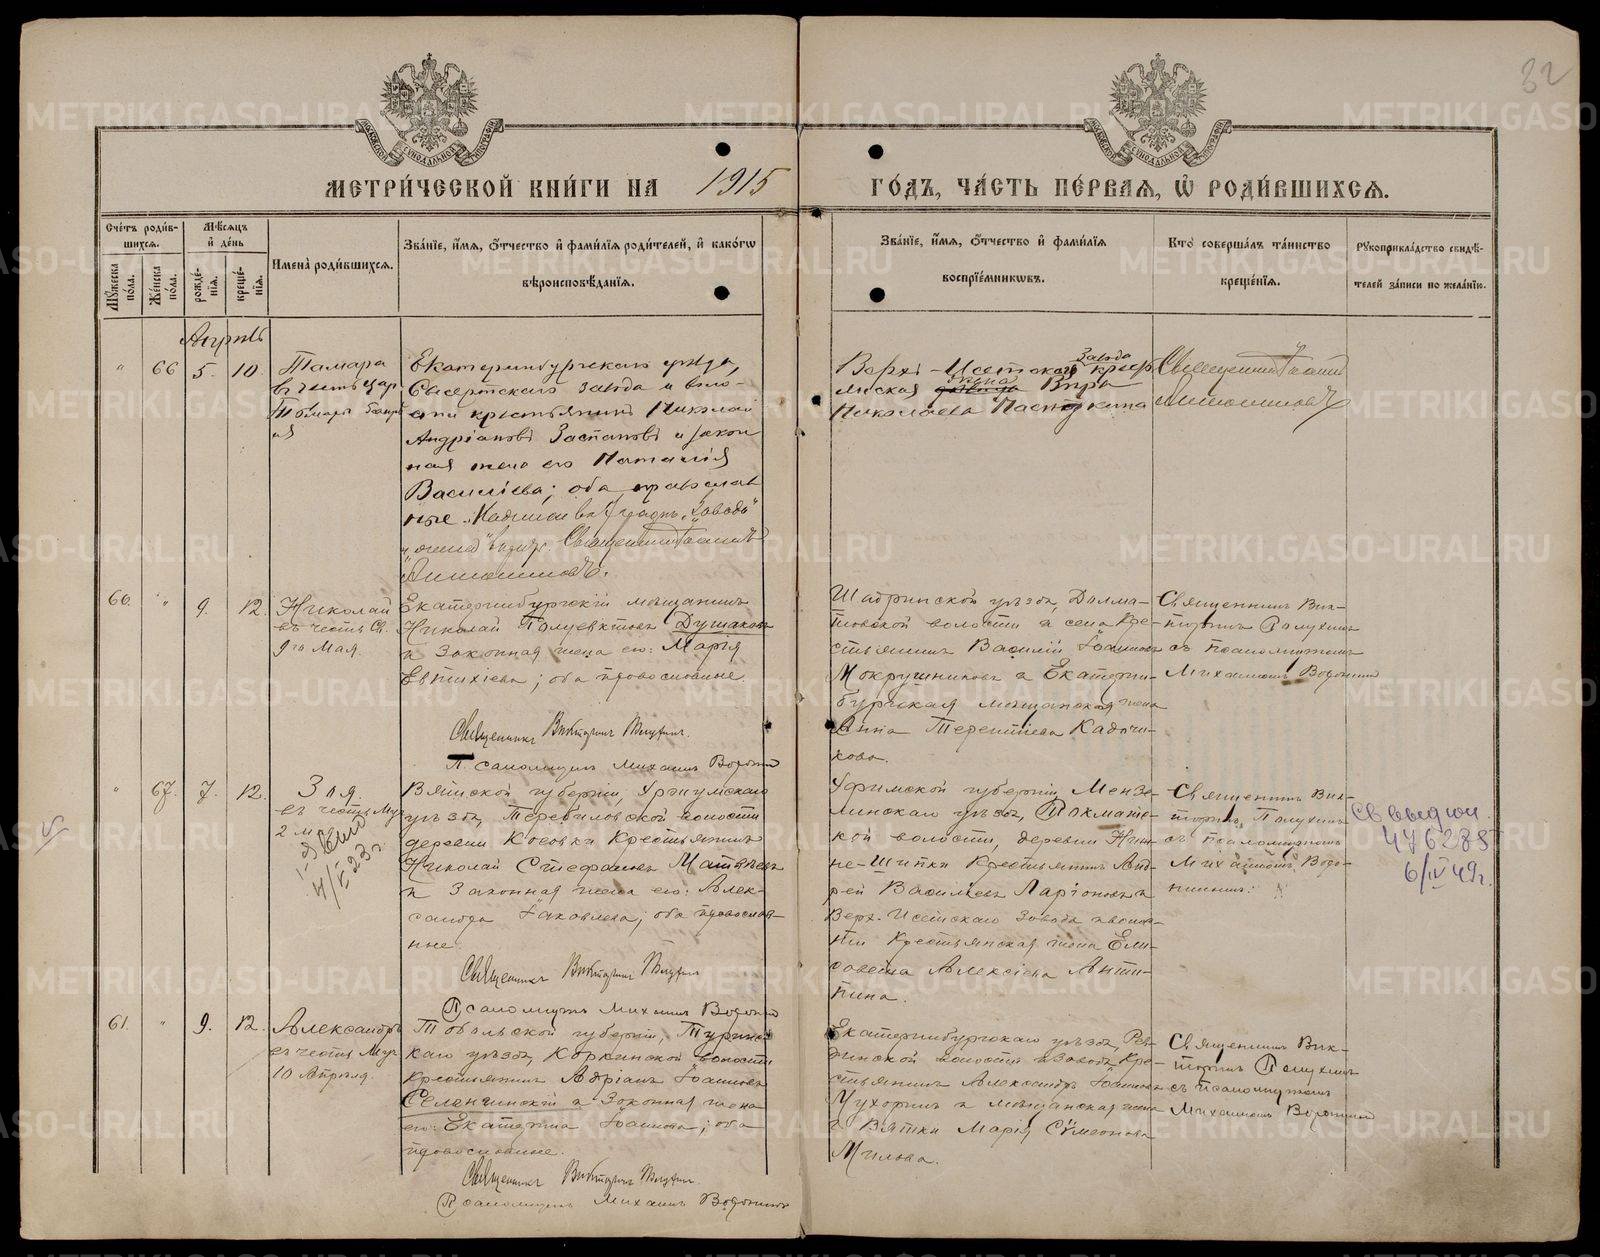 32
МОСКОВСКОЙ СУНОДАЛЬНОЙ ТИПОГРАФІИ
МОСКОВСКОЙ СУНОДАЛЬНОЙ ТИПОГРАФІИ
МЕТРИ́ЧЕСКОЙ КНИ́ГИ НА 1915 ГО́ДЪ, ЧА́СТЬ ПЕ́РВАѦ, Ѽ РОДИ́ВШИХСѦ.
Сче́тъ роди́в-
шихсѧ.
Мѣ́сѧцъ
и҆ де́нь
Мꙋ́жеска
по́ла.
Же́нска
по́ла.
рожде́-
нїѧ.
креще́-
нїѧ.
Имена̀ роди́вшихсѧ.
Зва́нїе, и҆́мѧ, ѻ҆́тчество и҆ фами́лїѧ роди́телей, и҆ како́гѡ
вѣроисповѣ́данїѧ.
Зва́нїе, и҆́мѧ, ѻ҆́тчество и҆ фами́лїѧ
воспрїе́мникѡвъ.
Кто̀ соверша́лъ та́инство
креще́нїѧ.
Рꙋкоприкла́дство свидѣ́-
телей за́писи по жела́нїю.
Апрѣль
" 66 5. 10.
Тамара
въ честь цар.
Тамары
Екатеринбургскаго уѣзда,
Сысертскаго завода и воло-
сти крестьянинъ Николай
Андріановъ Заспановъ и закон
ная жена его Наталія
Василіева; оба православ
ные. Надписи "завода"
"жена" вѣрны. Священникъ
Верхъ-Исетскаго завода крест
янская жена Вѣра
Николаева Пастухина
Священникъ
66. " 9. 12.
Николай
въ честь Св.
9го Мая.
Екатеринбургскій мѣщанинъ
Николай Полуевктовъ Душаковъ
и законная жена его: Марія
Евтихіева; оба православные.
Священникъ Викторинъ Полухинъ.
Псаломщикъ Михаилъ Воронинъ
Шадринскаго уѣзда, Далма-
товской волости и села кре-
стьянинъ Василій Іоанновъ
Мокрушниковъ и Екатерин-
бургская мѣщанская жена
Анна Терентіева Кадочни-
кова.
Священникъ Вик-
торинъ Полухинъ
съ псаломщикомъ
Михаиломъ Воронинымъ
" 67. 7. 12.
Зоя.
въ честь Муч.
2 м
4/I 23 г.
Вятской губерніи, Уржумскаго
уѣзда, Теребиловской волости
деревни Косовки крестьянинъ
Николай Стефановъ Матвѣевъ
и законная жена его: Алек-
сандра Іаковлева; оба православ-
ные.
Священникъ Викторинъ Полухинъ
Псаломщикъ Михаилъ Воронинъ
Уфимской губерніи, Мензе-
линскаго уѣзда, Токмакс-
кой волости, деревни Ниж-
не-Шипки крестьянинъ Анд-
рей Василіевъ Ларіоновъ и
Верх-Исетскаго завода и волос-
ти крестьянская жена Ели-
савета Алексіева Анти-
пина.
Священникъ Вик-
торинъ Полухинъ
съ псаломщикомъ
Михаиломъ Воро-
нинымъ.
Св выдан.
476285
6/IV 49г.
61. " 9. 12.
Александръ
въ честь Муч.
10 Апрѣля.
Тобольской губерніи, Туринс-
каго уѣзда, Коркинской волости
крестьянинъ Адріанъ Іоанновъ
Селенгинскій и законная жена
его: Екатерина Іоаннова; оба
православные.
Священникъ Викторинъ Полухинъ.
Псаломщикъ Михаилъ Воронинъ
Екатеринбургскаго уѣзда, Рев-
динской волости и завода кре-
стьянинъ Александръ Іоанновъ
Мухоринъ и мѣщанская жена
г. Вятки Марія Сѵмеонова
Милова.
Священникъ Вик-
торинъ Полухинъ
съ псаломщикомъ
Михаиломъ Воронинымъ
METRIKI.GASO-URAL.RU